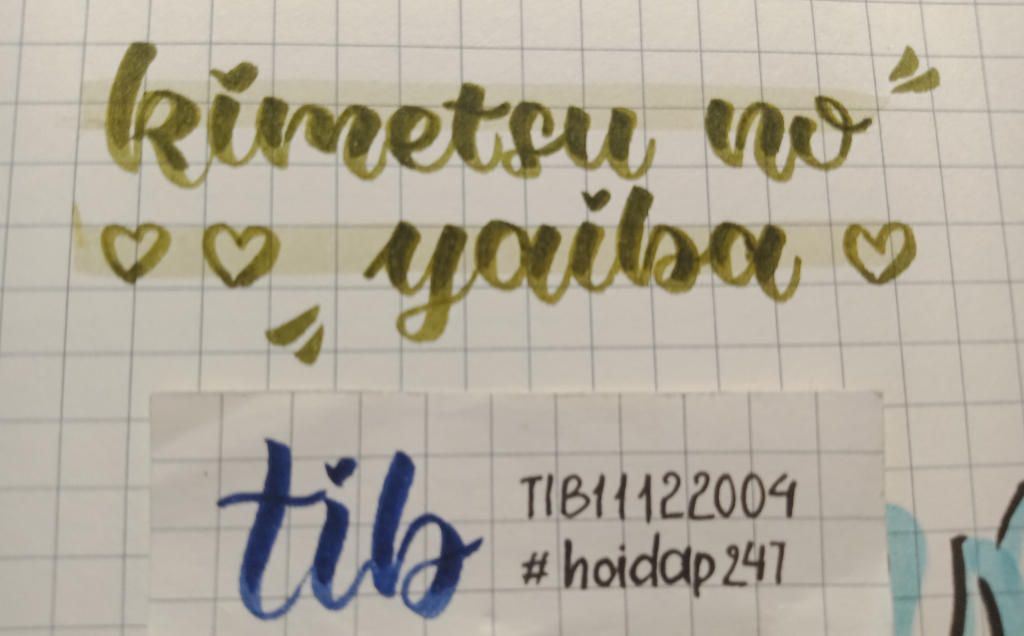 kimetsu no
yaiba
tib
TIB11122004
#hoidap247